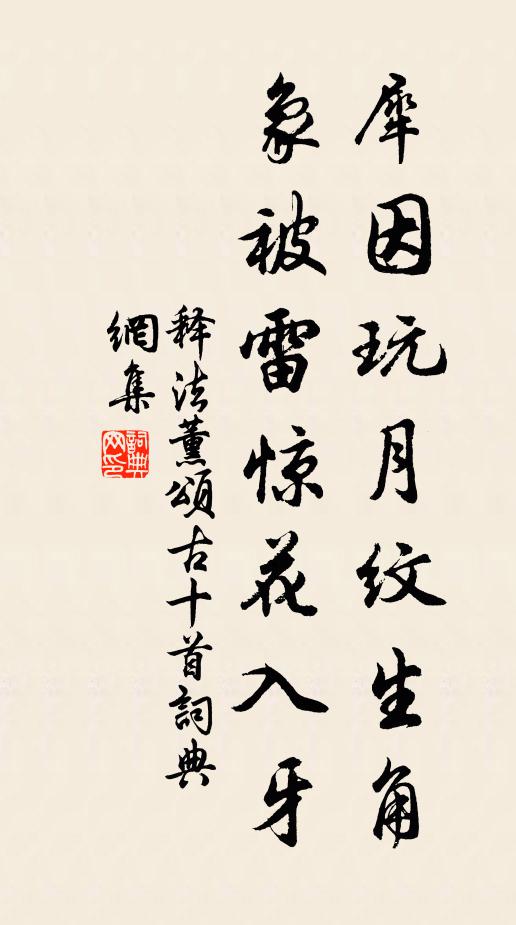 犀因玩月纹生角
象被雷惊花入牙
释法薰颂古十首詞典
網集
詞典网印